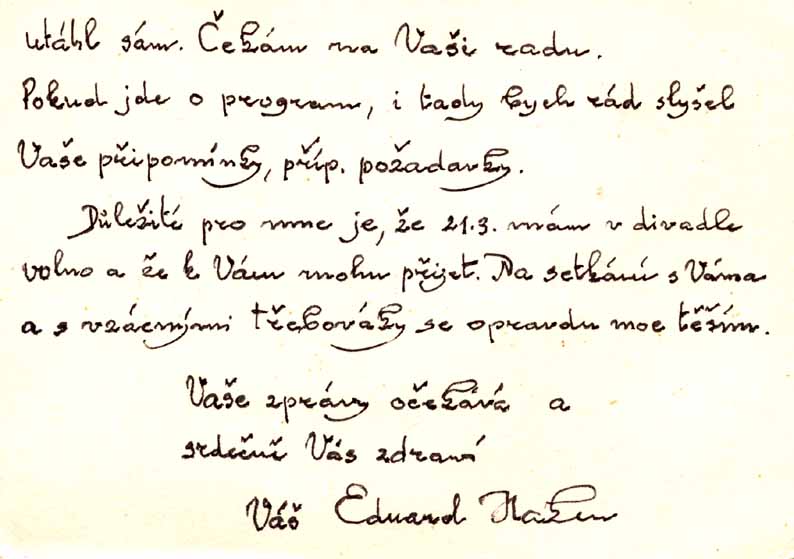 utáhl sám. Čekám na Vaši radu.
Pokud jde o program, i tady bych rád slyšel
Vaše připomínky, příp. požadavky.
Důležité pro mne je, že 21.3. mám v divadle
volno a že k Vám mohu přijet. Na setkání s Váma
a s vzácnými třebováky se opravdu moc těším.
Vaše zprávy očekává a
srdečně Vás zdraví
Váš Eduard Haken